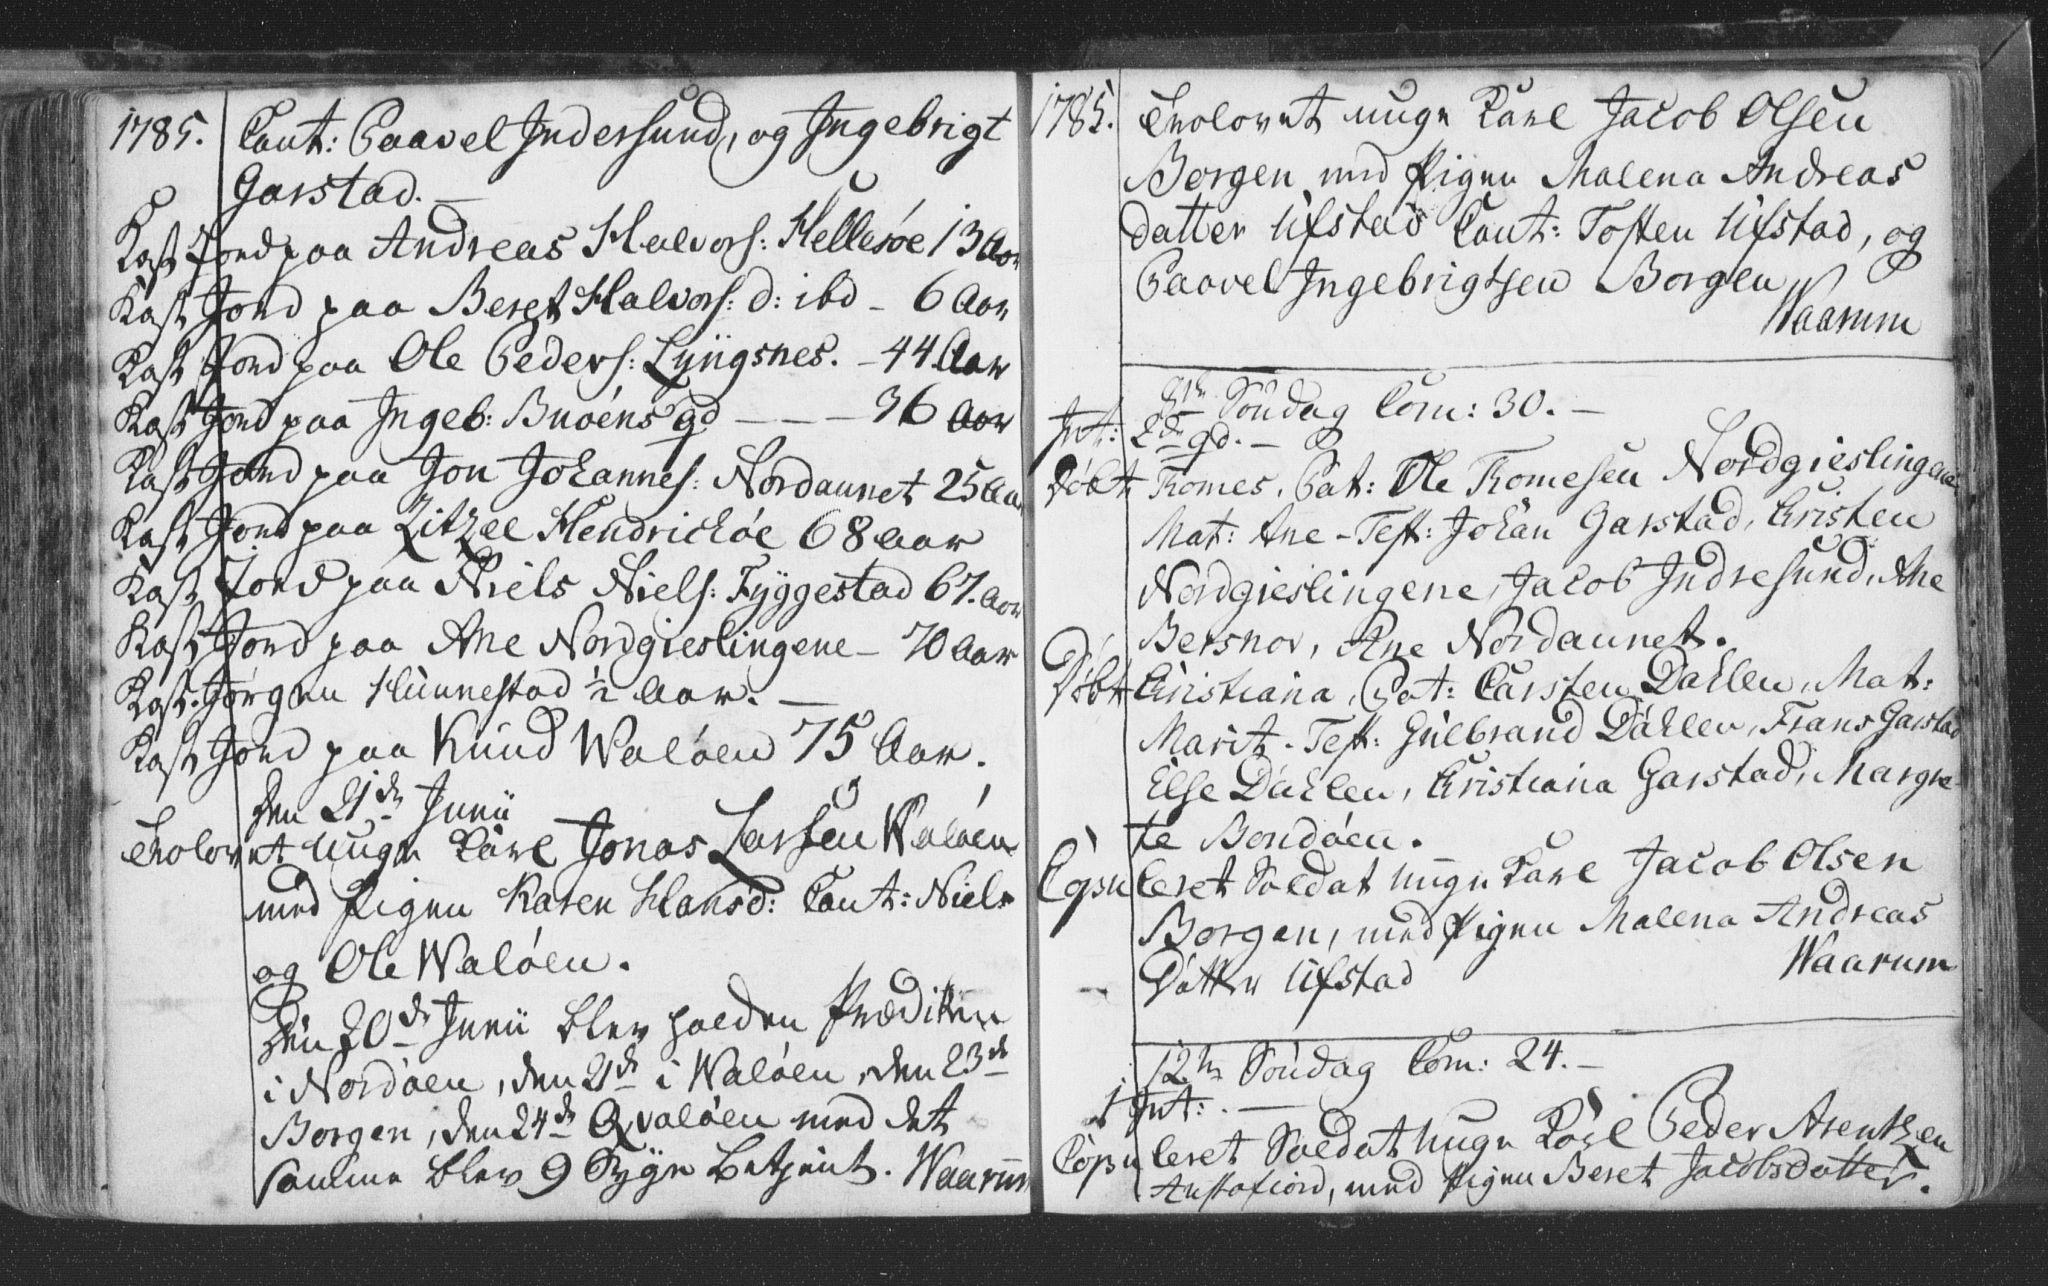 1785. Caut: Paavel Indersund, og Ingebrigt
Garstad. —
Kast Jord paa Andreas Halvors: Hellesøe 13 Aar
Kast Jord paa Beret Halvors: d: ibd – 6 Aar
Kast Jord paa Ole Peders: Lyngsnes. – 44 Aar
Kast Jord paa Ingeb: Buøens gd — — 36 Aar
Kast Jord paa Jon Johannes: Nordaunet 25 Aar
Kast Jord paa Zitzel Hendrichøe 68 Aar
Kast Jord paa Niels Niels: Fyggestad 67. Aar
Kast Jord paa Ane Nordgieslingene – 70 Aar
Kast. Jørgen Hunnestad ½ Aar. —
Kast Jord paa Knud Waløen 75 Aar.
Den 21de Junii
Trolovet unge Karl Jonas Larsen Waløen
med Pigen Karen Hansd: Caut: Niels
og Ole Waløen.
Den 20de Junii blev holden Prædiken
i Nordøen, den 21de i Waløen, den 23de
Borgen, den 24de Qvaløen med det
samme blev 9 Syge betjent. Waarum
1785. Trolovet unge Karl Jacob Olsen
Borgen med Pigen Malena Andreas
datter Ufstad Caut: Tosten Ufstad, og
Paavel Ingebrigtsen Borgen
Waarum
Søndag Com: 30. —
Int: 2de gd. —
Døbt Tomes, Pat: Ole Tomesen Nordgieslingene
Mat: Ane – Test: Johan Garstad, Christen
Nordgieslingene, Jacob Indresund, Ane
Bersnov, Ane Nordaunet.
Døbt Christiana, Pat: Carsten Dahlen, Mat:
Marit – Test: Gulbrand Dahlen, Frans Garstad
Else Dahlen, Christiana Garstad, Margre
te Bondøen.
Copuleret Soldat unge Karl Jacob Olsen
Borgen, med Pigen Malena Andreas
Datter Ufstad Waarum
12te Søndag Com: 24. —
1 Int: . —
Copuleret Soldat unge Karl Peder Arentzen
med Pigen Beret Jacobsdatter.